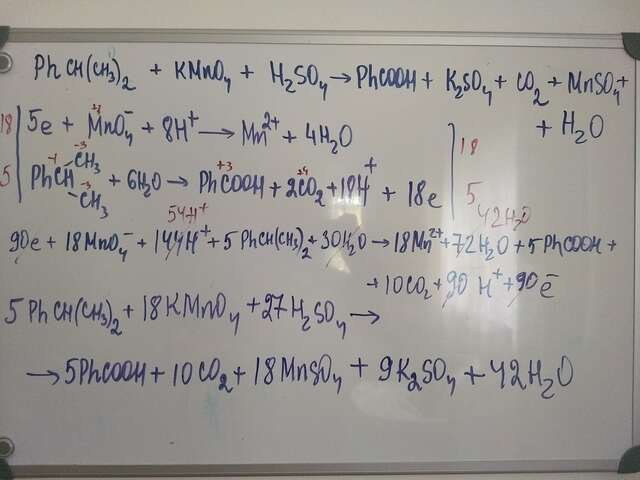 PhCH(CH₃)₂ + KMnO₄ + H₂SO₄ → PhCOOH + K₂SO₄ + CO₂ + MnSO₄ +
+ H₂O
18 | 5e + MnO₄⁻ + 8H⁺ → Mn²⁺ + 4H₂O | 18
5 | PhCH(CH₃)CH₃ + 6H₂O → PhCOOH + 2CO₂ + 18H⁺ + 18e | 5
-1 -3 -3 +3 +4
54H⁺ 42H₂O
90e + 18MnO₄⁻ + 144H⁺ + 5PhCH(CH₃)₂ + 30H₂O → 18Mn²⁺ + 72H₂O + 5PhCOOH +
+ 10CO₂ + 90H⁺ + 90e⁻
5PhCH(CH₃)₂ + 18KMnO₄ + 27H₂SO₄ →
→ 5PhCOOH + 10CO₂ + 18MnSO₄ + 9K₂SO₄ + 42H₂O